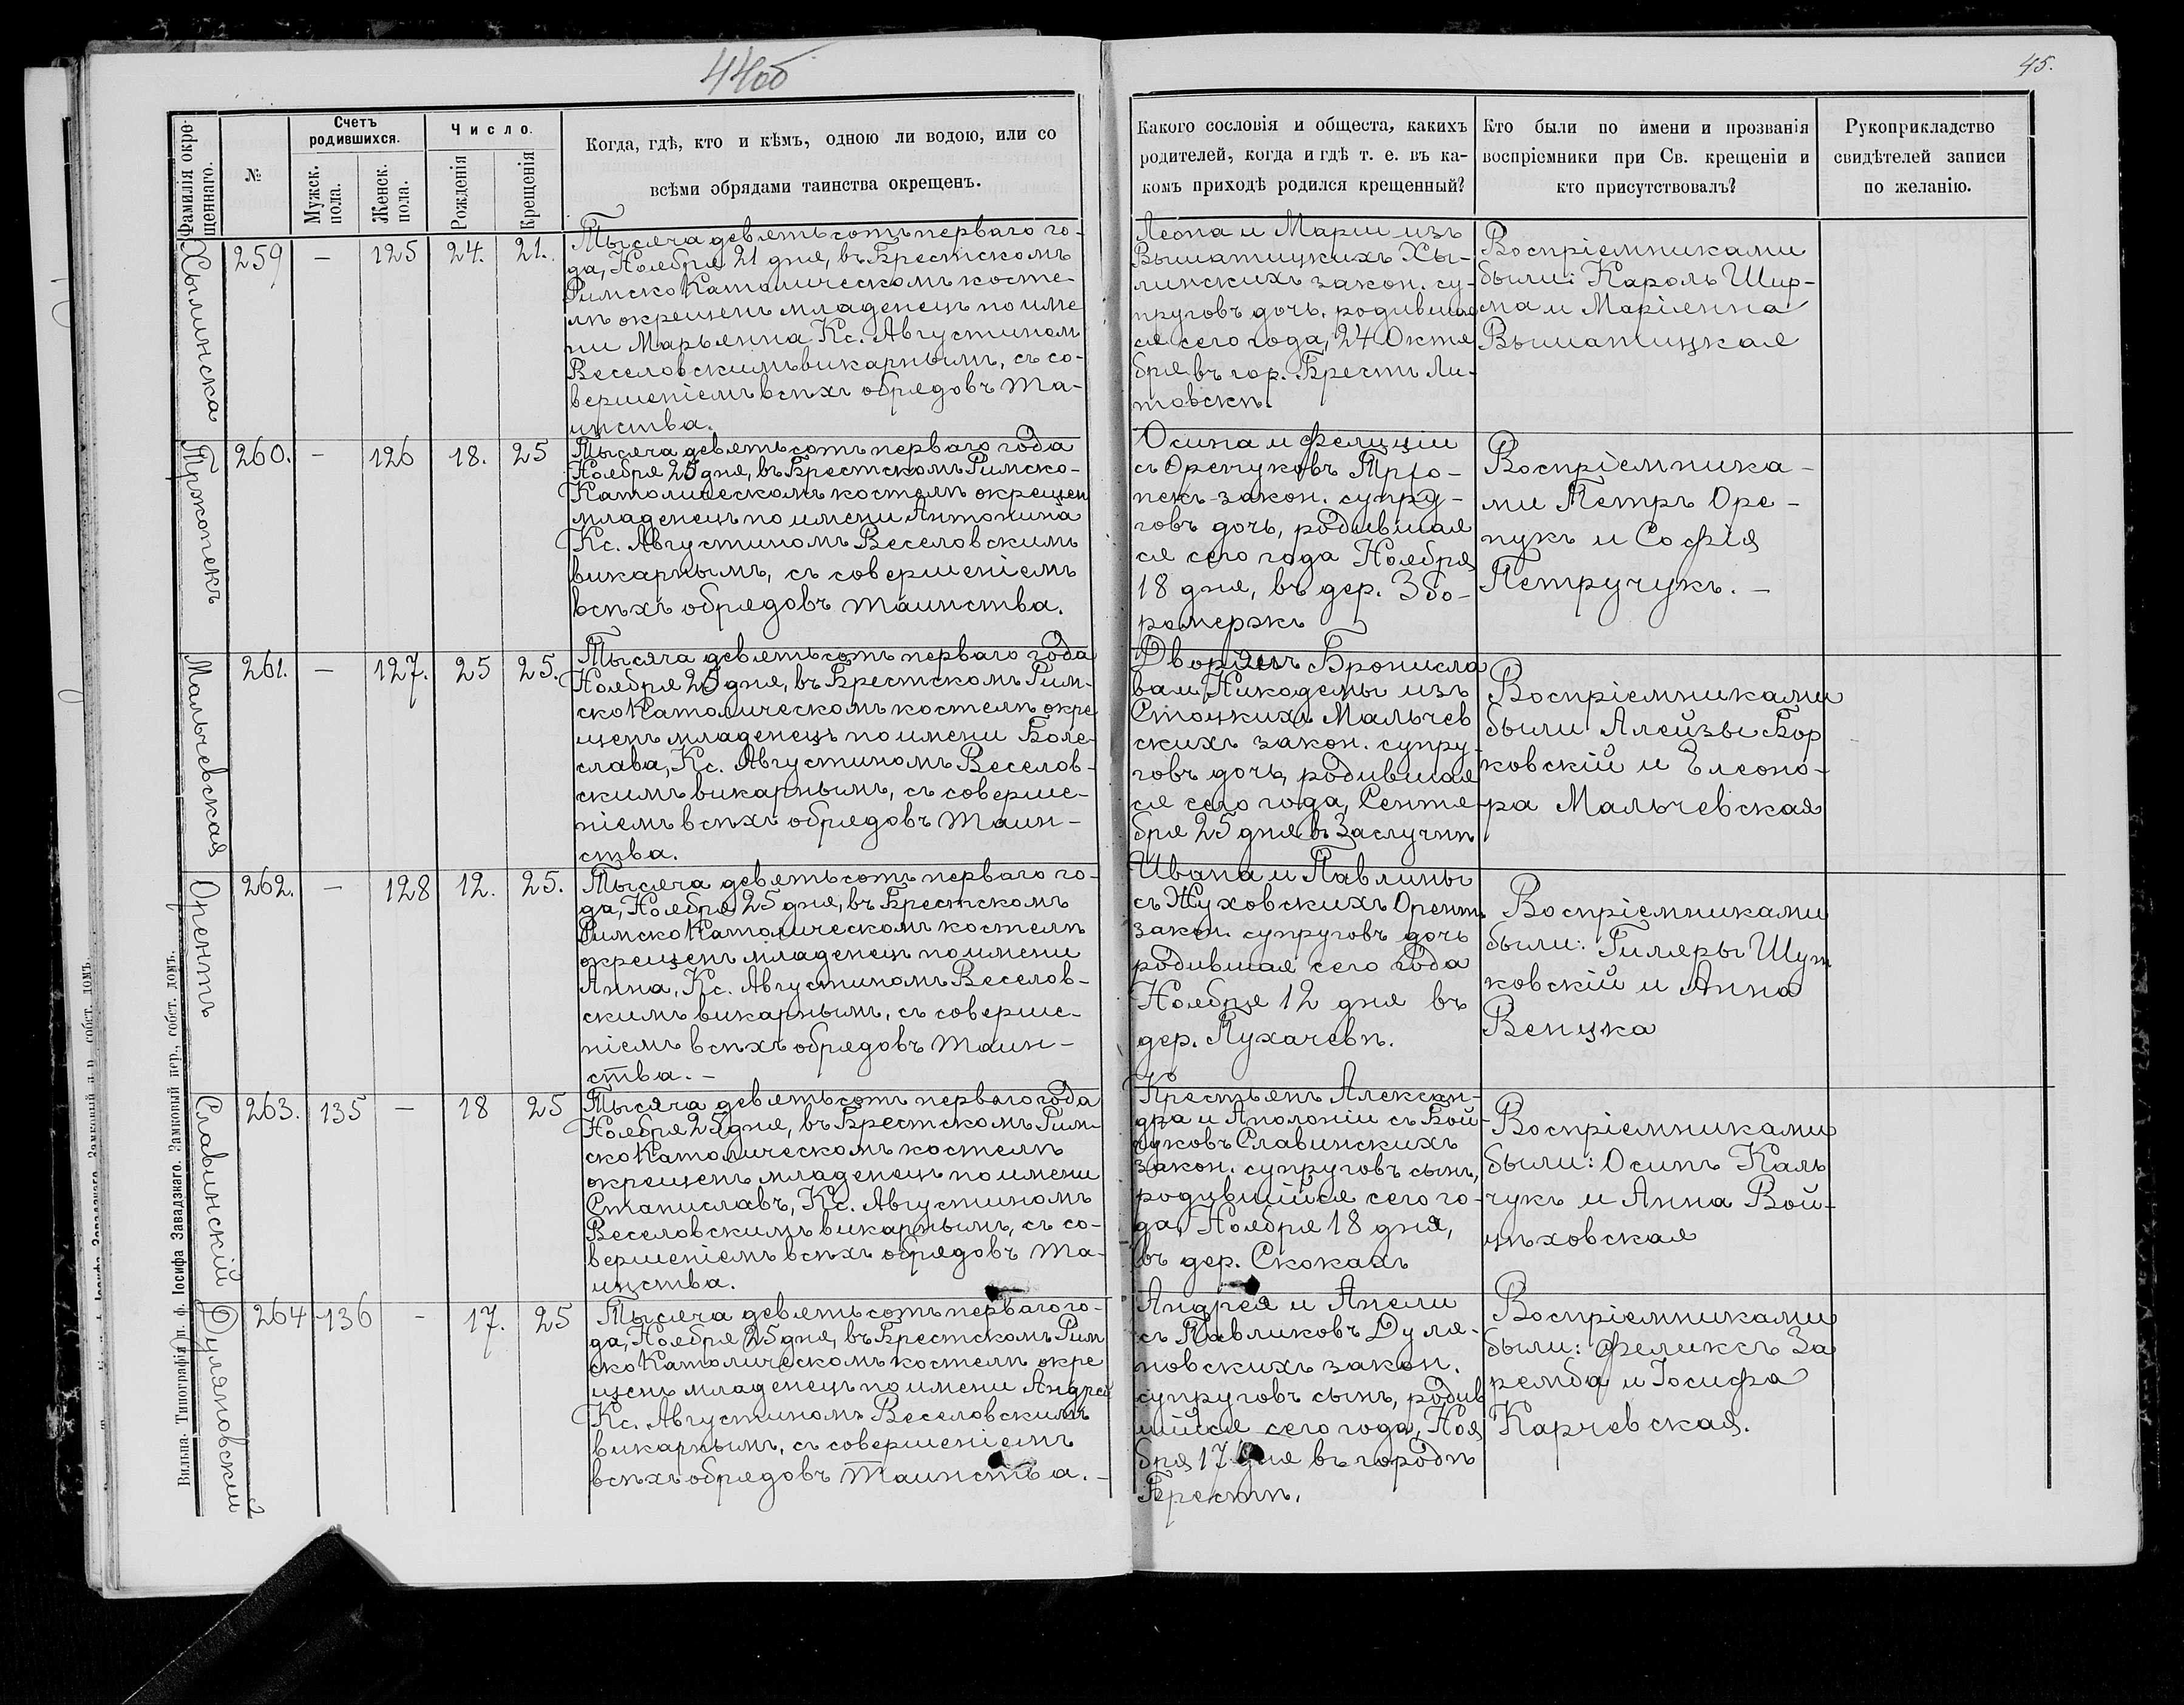 44об
45.
Фамилія окре-
щеннаго.
№
Счетъ
родившихся.
Мужск.
пола.
Женск.
пола.
Число.
Рожденія
Крещенія
Когда, гдѣ, кто и кѣмъ, одною ли водою, или со
всѣми обрядами таинства окрещенъ.
Какого сословія и общеста, какихъ
родителей, когда и гдѣ т. е. въ ка-
комъ приходѣ родился крещенный?
Кто были по имени и прозванія
воспріемники при Св. крещеніи и
кто присутствовалъ?
Рукоприкладство
свидѣтелей записи
по желанію.
Хылинска
259 — 125 24. 21.
Тысяча девятьсотъ перваго го-
да, Ноября 21 дня, въ Брестскомъ
Римско Католическомъ косте-
лѣ окрещенъ младенецъ по име
ни Марьянна Кс. Августином
Веселовскимъ викарнымъ, съ со-
вершеніемъ всѣхъ обрядовъ Та-
инства.
Леона и Маріи изъ
Вышатицкихъ Хы-
линскихъ закон. су-
пруговъ дочь, родившая
ся сего года, 24 Октя
бря въ гор. Брестъ Ли-
товскѣ.
Воспріемниками
были: Кароль Шир-
ма и Маріенна
Вышатицкая
Тржопекъ
260. — 126 18. 25
Тысяча девятьсотъ перваго года
Ноября 25 дня, въ Брестскомъ Римско-
Католическомъ костелѣ окрещен
младенецъ по имени Антонина
Кс. Августиномъ Веселовскимъ
викарнымъ, съ совершеніемъ
всѣхъ обрядовъ таинства.
Осипа и Фелиціи
съ Оренуковъ
пекъ закон. супру-
говъ дочь, родившая
ся сего года Ноября
18 дня, въ дер. Збо-
ромержъ
Воспріемника-
ми Петръ Оре-
нукъ и Софія
Петручукъ. —
Мальчевская
261. — 127. 25 25.
Тысяча девятьсотъ перваго года
Ноября 25 дня, въ Брестскомъ Рим-
ско Католическомъ костелѣ окре
щенъ младенецъ по имени Боле-
слава, Кс. Августиномъ Веселов-
скимъ викарнымъ, съ соверше-
ніемъ всѣхъ обрядовъ Таин-
ства.
Дворянъ Брониссла
ва и Никодемы изъ
Стоцкихъ Мальчев
скихъ закон. супру-
говъ дочь, родившая
ся сего года, Сентя-
бря 25 дня въ Заслучнѣ
Воспріемниками
были Алейзы Бор
ковскій и Елеоно-
ра Мальчевская
Орентъ
262. — 128 12. 25.
Тысяча девятьсотъ перваго го-
да, Ноября 25 дня, въ Брестскомъ
Римско Католическомъ костелѣ
окрещенъ младенец по имени
Анна, Кс. Августиномъ Веселов-
скимъ викарнымъ, съ соверше-
ніемъ всѣхъ обрядовъ Таин-
ства. —
Ивана и Павлины
съ Жуховскихъ Орентъ
закон. супруговъ дочь
родившая сего года
Ноября 12 дня въ
дер. Пухачевѣ.
Воспріемниками
были: Гиляры Шут
ковскій и Анна
Венцка
Славинскій
263. 135 — 18 25
Тысяча девятьсотъ перваго года
Ноября 25 дня, въ Брестскомъ Рим-
ско Католическомъ костелѣ
окрещенъ младенец по имени
Станиславъ, Кс. Августиномъ
Веселовскимъ викарнымъ, съ со-
вершеніемъ всѣхъ обрядовъ Та-
инства.
Крестьянъ Алексан-
дра и Аполоніи съ Бой-
чуковъ Славинскихъ
закон. супруговъ сынъ,
родившійся сего го-
да, Ноября 18 дня,
въ дер. Скокахъ
Воспріемниками
были: Осипъ Каль
чукъ и Анна Вой-
цѣховская
Дуляновскій
264 136 - 17. 25
Тысяча девятьсотъ перваго го-
да, Ноября 25 дня, въ Брестскомъ Рим
ско Католическомъ костелѣ окре
щенъ младенецъ по имени Андрей
Кс. Августиномъ Веселовскимъ
викарнымъ, съ совершеніемъ
всѣхъ обрядовъ Таинства. —
Андрея и Анели
съ Павликовъ Дуля-
новскихъ закон.
супруговъ сынъ, родив
шійся сего года, Ноя
бря 17 дня въ городѣ
Брестѣ.
Воспріемниками
были: Феликсъ За
ремба и Іосифа
Карчевская.
Вильна. Типографія п. ф. Іосифа Завадзкаго. Замковый пер., собст. домъ.